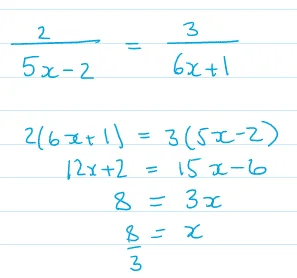 2/(5x-2) = 3/(6x+1)
2(6x+1) = 3(5x-2)
12x+2 = 15x-6
8 = 3x
8/3 = x